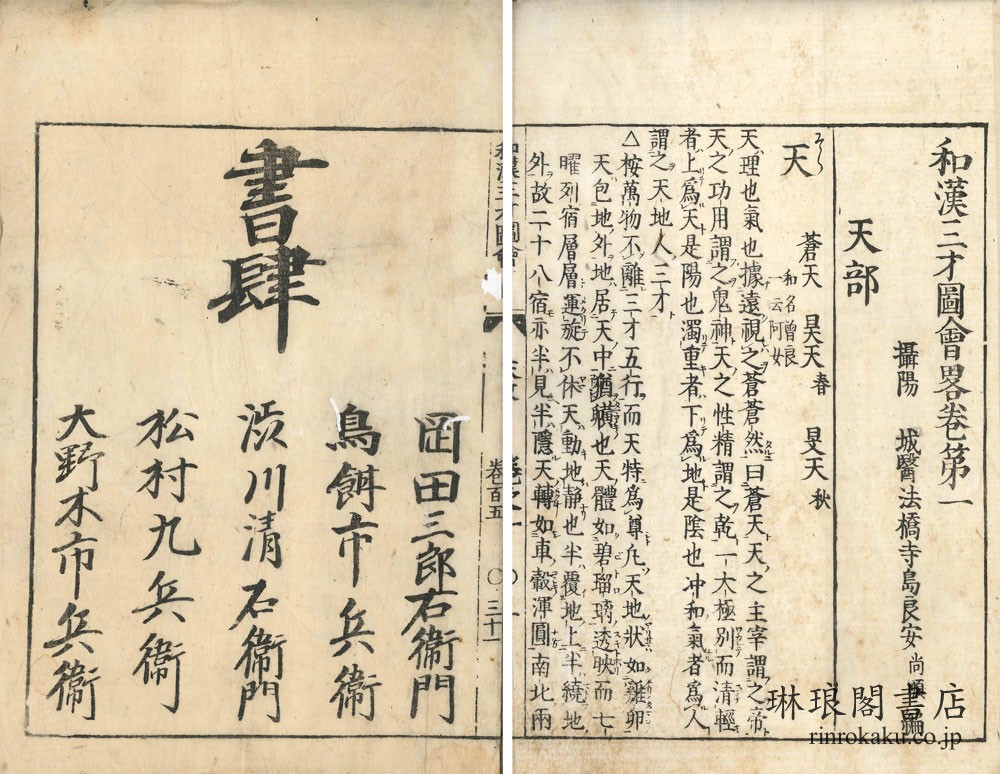 和漢三才圖會畧卷第一
攝陽 城醫法橋寺島良安尚順編
天部
天 そら
蒼天 昊天春 旻天秋
和名曽良
云阿女
天理也氣也據遠視之蒼蒼然曰蒼天天之主宰謂之帝
天之功用謂之鬼神天之性精謂之乾一太極別而清輕
者上爲天是陽也濁重者下爲地是陰也冲和氣者爲人
謂之天地人三才
△桉萬物不離三才五行而天特爲尊凢天地狀如雞卵
天包地外地居天中猶橫也天體如碧瑠璃透映而七
曜列宿層層運旋不休天動地静也半覆地上半繞地
外故二十八宿亦半見半隱天轉如車轂渾圓南北兩
和漢三才圖會
卷百五 〇 三十一
書肆
岡田三郎右衞門
鳥餌市兵衞
渋川清右衞門
松村九兵衞
大野木市兵衞
琳琅閣書店
rinrokaku.co.jp